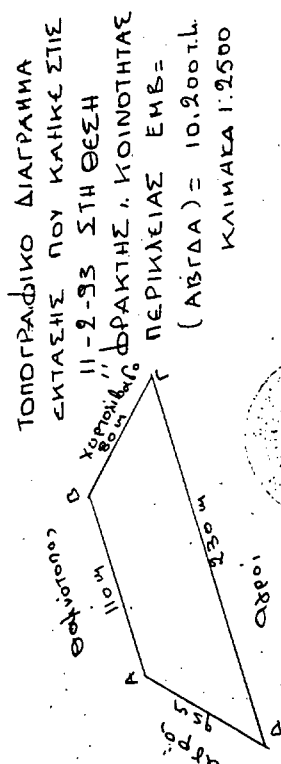 ΤΟΠΟΓΡΑΦΙΚΟ ΔΙΑΓΡΑΜΜΑ
ΕΚΤΑΣΗΣ ΠΟΥ ΚΑΗΚΕ ΣΤΙΣ
11-2-93 ΣΤΗ ΘΕΣΗ
"ΦΡΑΚΤΗΣ" ΚΟΙΝΟΤΗΤΑΣ
ΠΕΡΙΚΛΕΙΑΣ ΕΜΒ=
(ΑΒΓΔΑ)= 10.200τ.μ.
ΚΛΙΜΑΚΑ 1:2500
θαμνότοπος
χορτολίβαδο
Β
Α
110 m
80 m
Γ
95 m
αγρός
230 m
Δ
αγροί